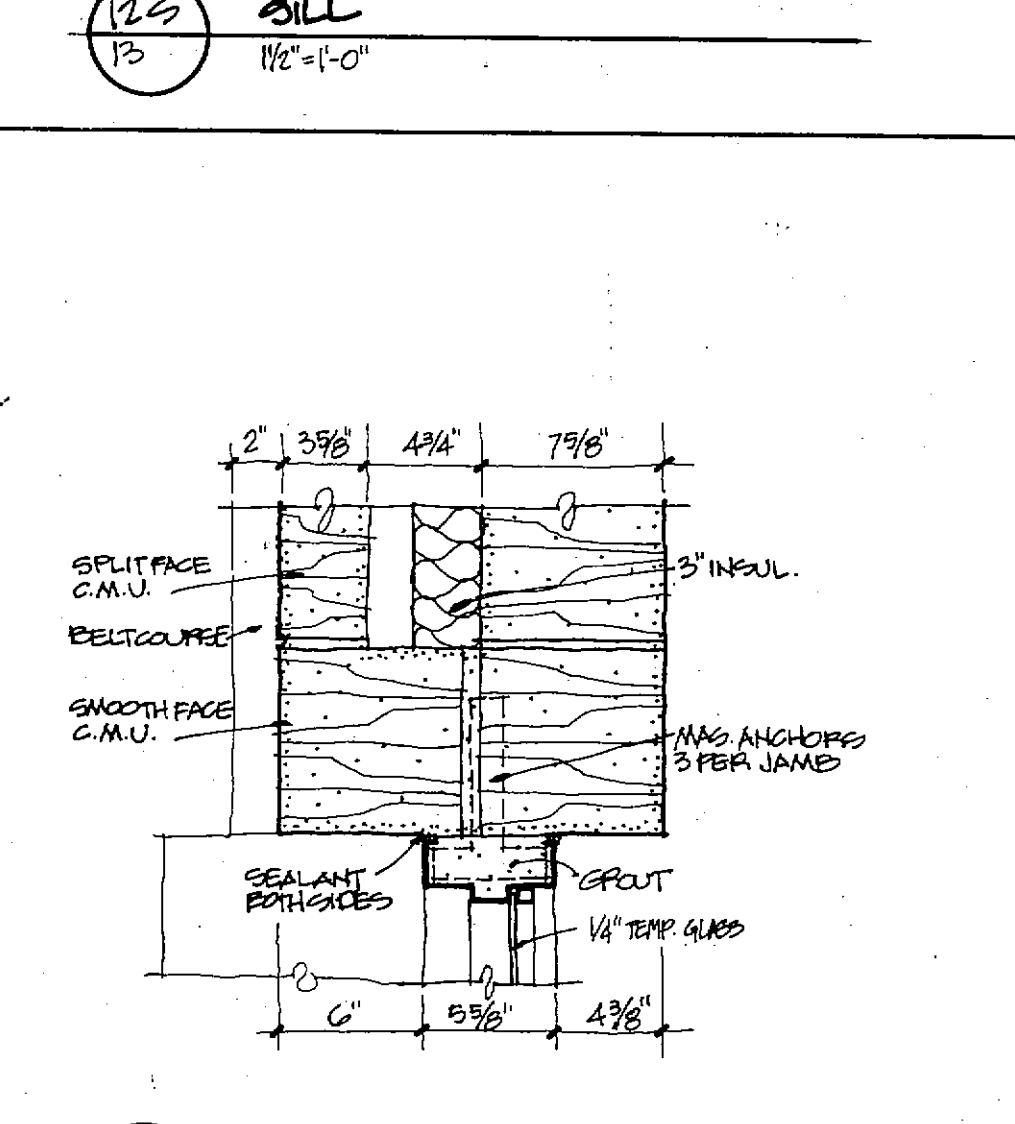 12S SILL
13 1½"=1'-0"
2" 3⅝" 4¾" 7⅝"
SPLIT FACE
C.M.U.
3" INSUL.
BELTCOURSE
SMOOTH FACE
C.M.U.
MAS. ANCHORS
3 PER JAMB
SEALANT
BOTH SIDES
GROUT
¼" TEMP. GLASS
6" 5⅝" 4⅜"